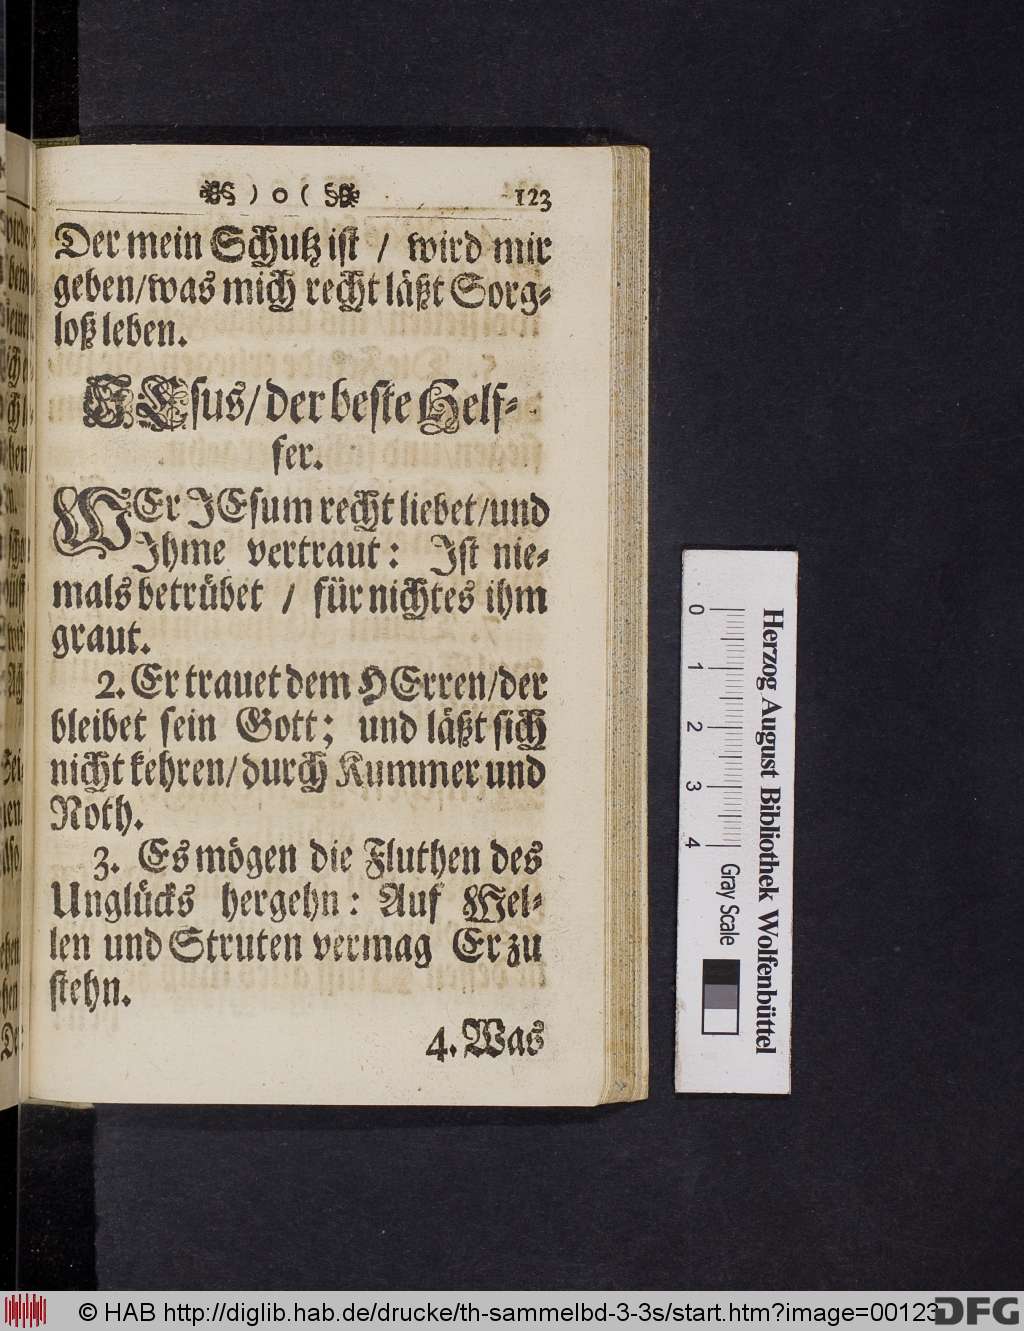 ) o ( 123
Der mein Schutz ist / wird mir
geben/was mich recht läßt Sorg-
loß leben.
JEsus/der beste Helf-
fer.
WEr JEsum recht liebet/und
Ihme vertraut: Ist nie-
mals betrübet / für nichtes ihm
graut.
2. Er trauet dem HErren/der
bleibet sein Gott; und läßt sich
nicht kehren/durch Kummer und
Noth.
3. Es mögen die Fluthen des
Unglücks hergehn: Auf Wel-
len und Struten vermag Er zu
stehn.
4. Was
0 1 2 3 4
Gray Scale
Herzog August Bibliothek Wolfenbüttel
© HAB http://diglib.hab.de/drucke/th-sammelbd-3-3s/start.htm?image=00123
DFG